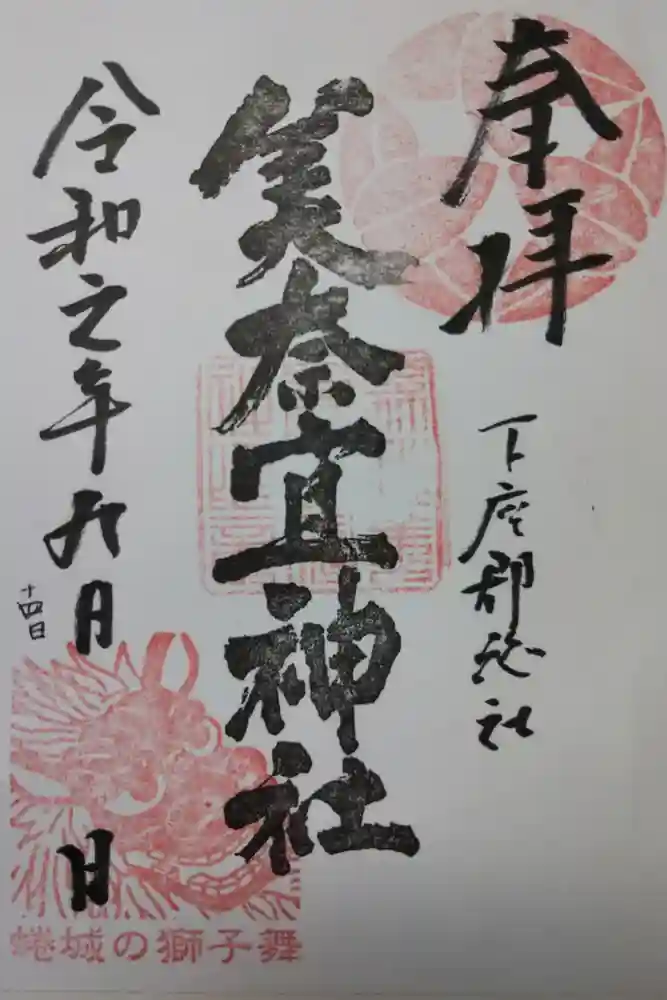 奉拝
下座郡総社
美奈宜神社
令和元年九月
十四日
日
蜷城の獅子舞